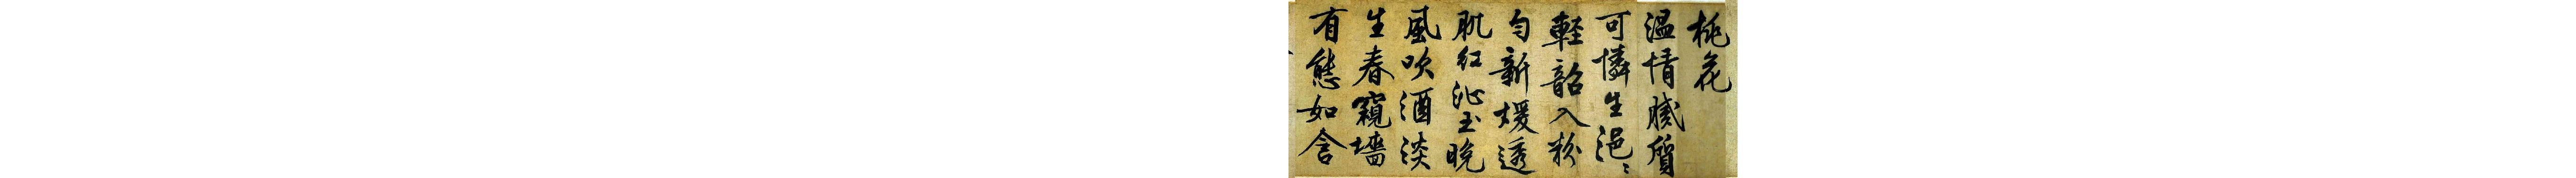 桃花
温情膩質
可憐生浥〻
輕韶入粉
勻新煖透
肌紅沁玉晚
風吹酒淡
生春窺墻
有態如含